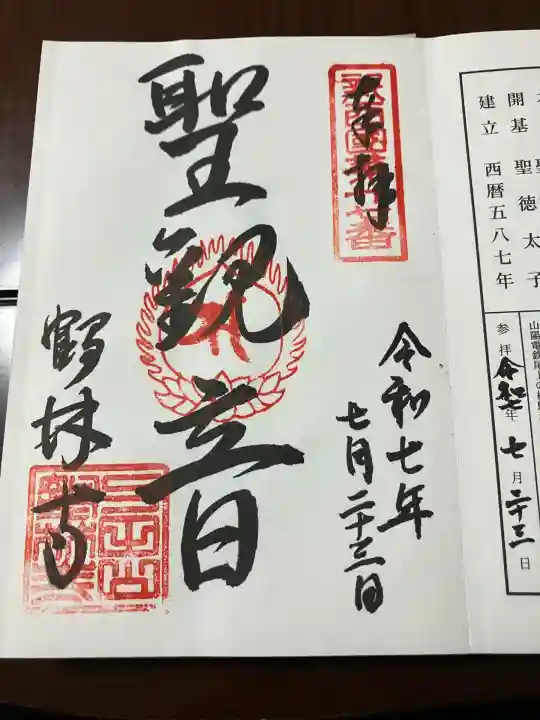 開基 聖徳太子
建立 西暦五八七年
参拝 令和七年 七月二十三日
奉拝
令和七年
七月二十三日
聖観音
鶴林寺